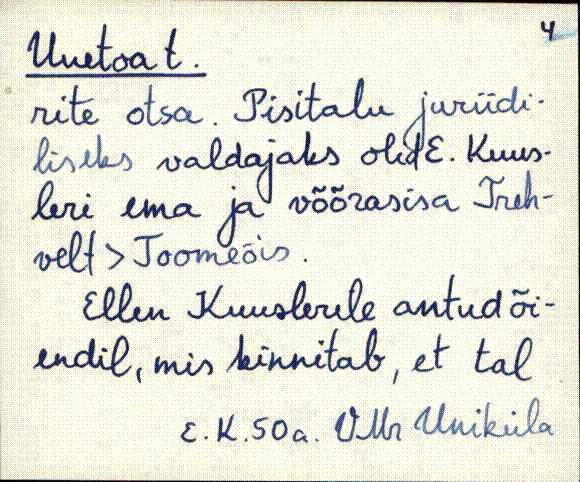 4
Uuetoa t.
rite otsa. Pisitalu juriidi-
liseks valdajaks olid E. Kuus-
leri ema ja võõrasisa Treh-
velt > Toomeõis.
Ellen Kuuslerile antud õi-
endil, mis kinnitab, et tal
E.K. 50 a. VMr Uniküla